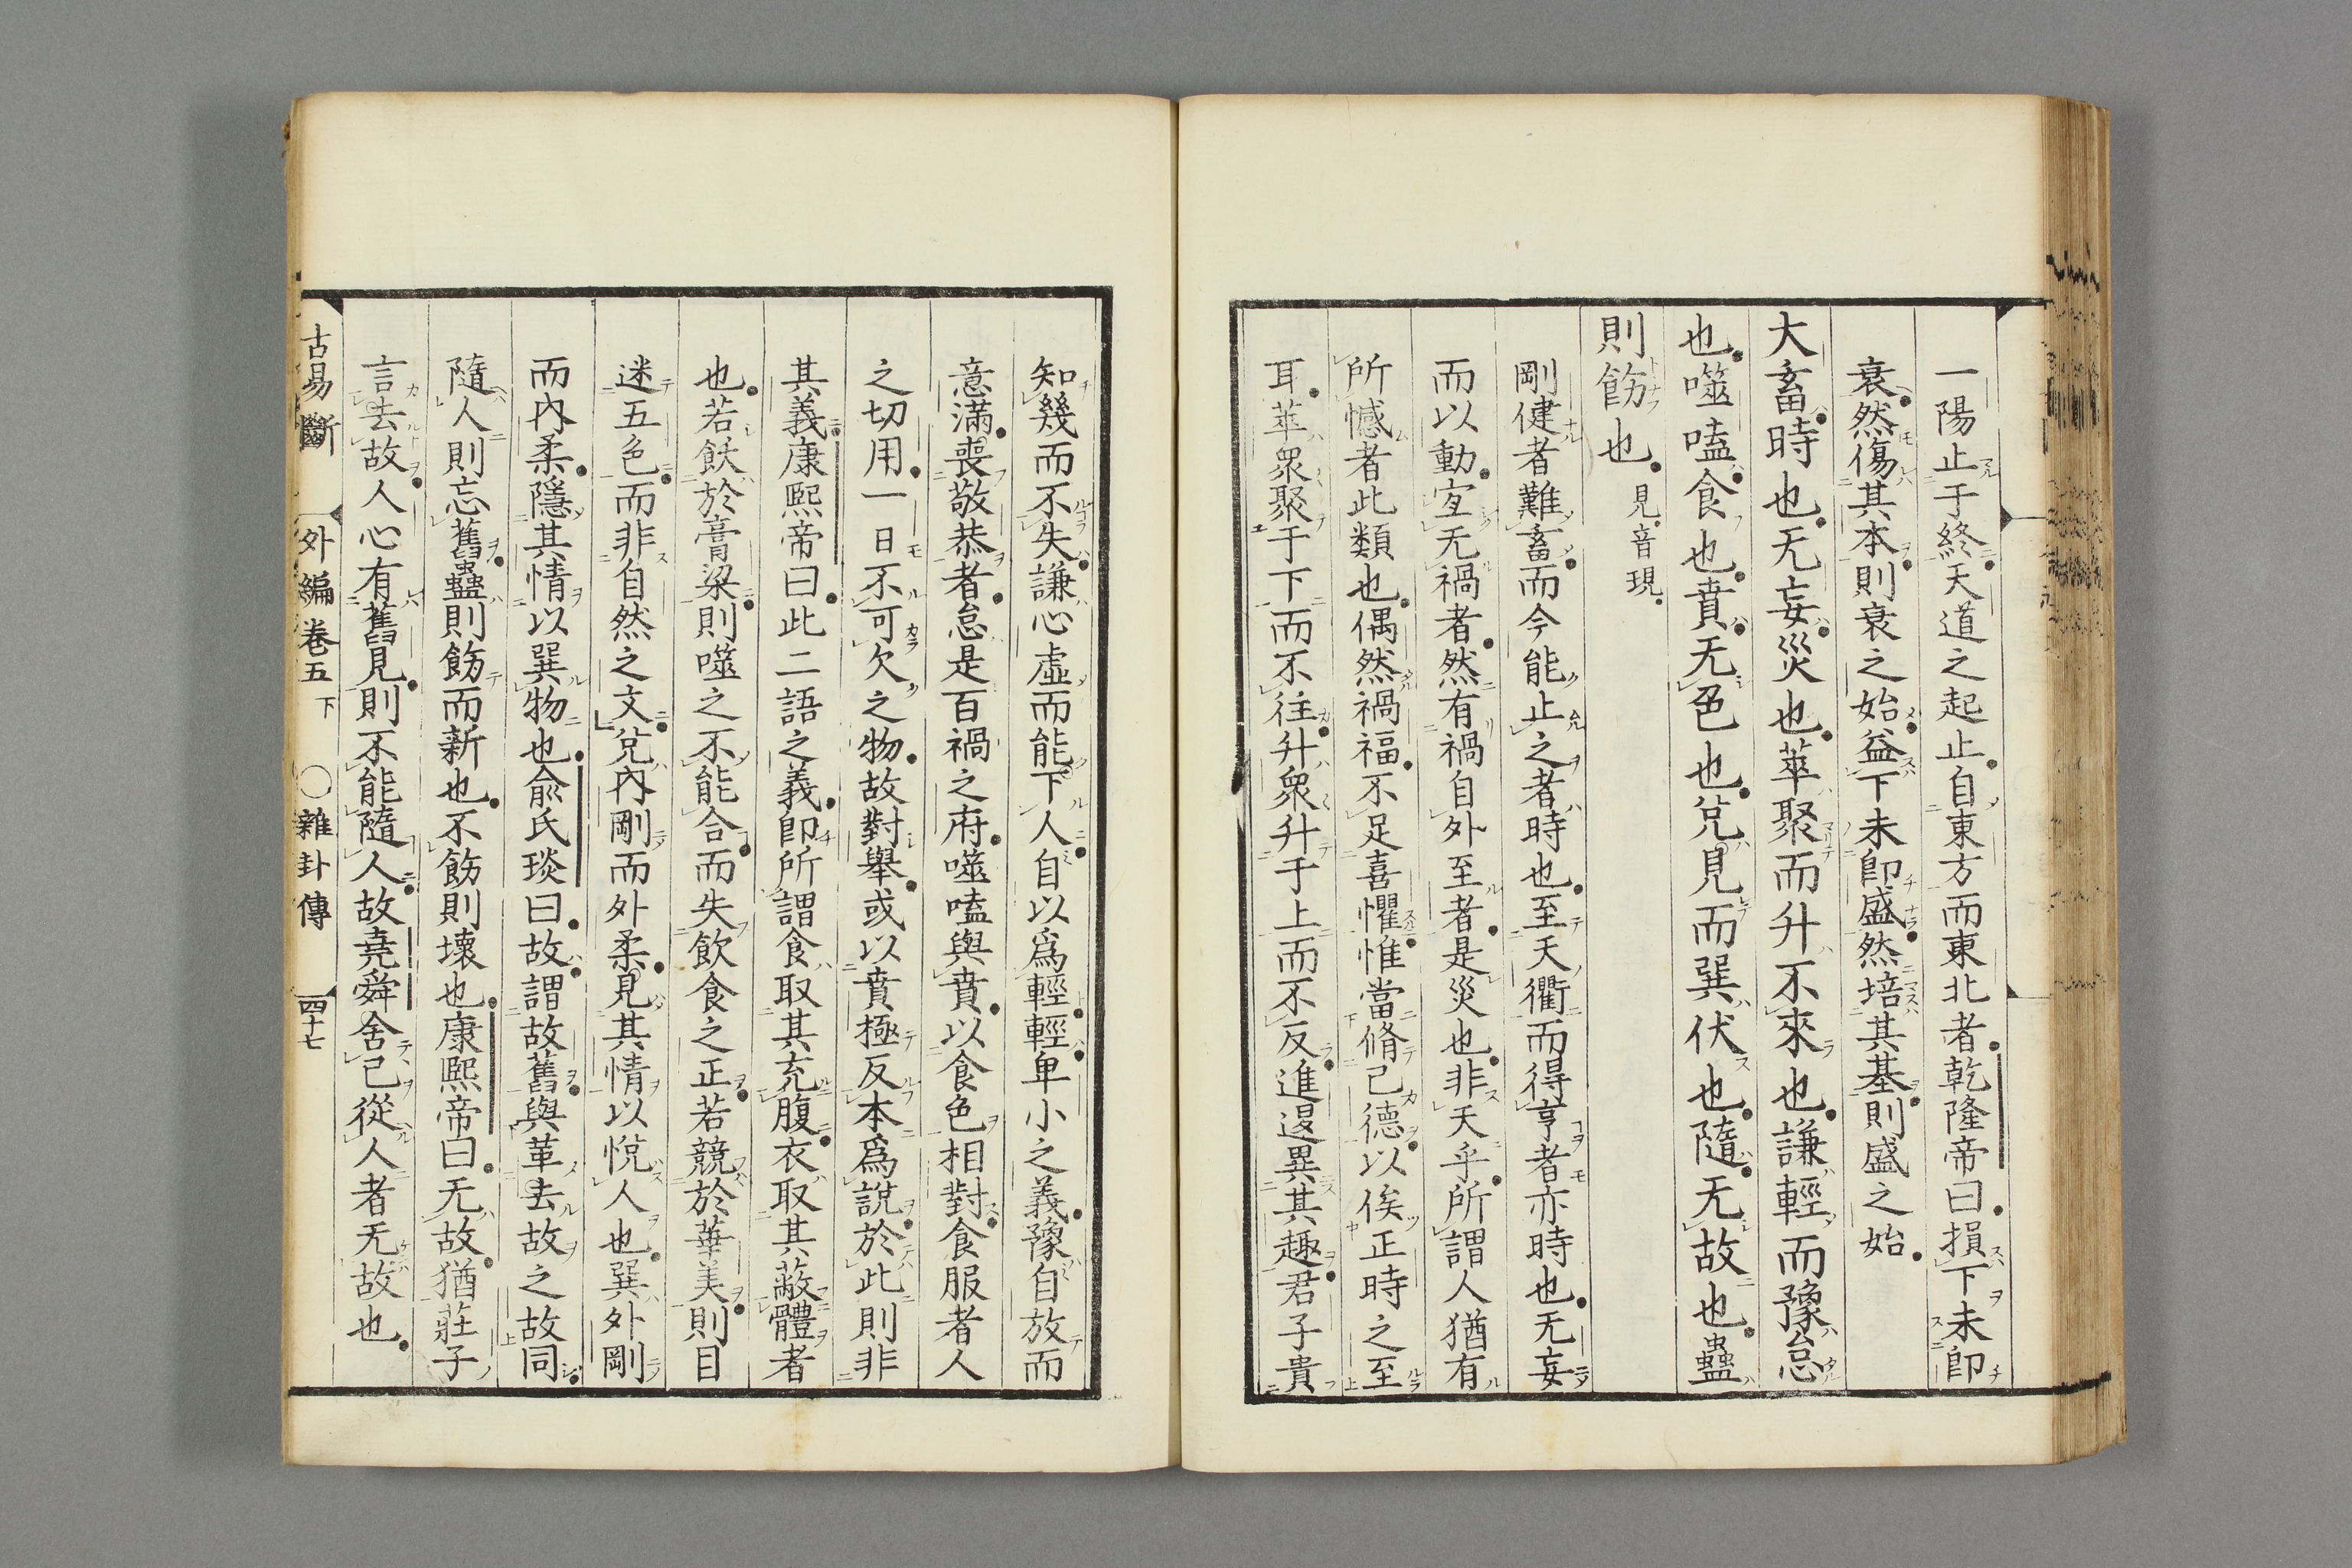 一陽止于終天道之起止自東方而東北者乾隆帝曰損下未卽
衰然傷其本則衰之始益下未卽盛然培其基則盛之始
大畜時也无妄災也萃聚而升不來也謙輕而豫怠
也噬嗑食也賁无色也兌見而巽伏也隨无故也蠱
則飭也見音現
剛健者難畜而今能止之者時也至天衢而得亨者亦時也无妄
而以動宐无禍者然有禍自外至者是災也非天乎所謂人猶有
所憾者此類也偶然禍福不足喜懼惟當脩己德以俟正時之至
耳萃衆聚于下而不往升衆升于上而不反進退異其趣君子貴
知幾而不失謙心虛而能下人自以爲輕輕卑小之義豫自放而
意滿喪敬恭者怠是百禍之府噬嗑與賁以食色相對食服者人
之切用一日不可欠之物故對舉或以賁極反本爲說於此則非
其義康熙帝曰此二語之義卽所謂食取其充腹衣取其蔽體者
也若飫於膏粱則噬之不能合而失飲食之正若競於華美則目
迷五色而非自然之文兌內剛而外柔見其情以悅人也巽外剛
而內柔隱其情以巽物也兪氏琰曰故謂故舊與革去故之故同
隨人則忘舊蠱則飭而新也不飭則壞也康熙帝曰无故猶莊子
言去故人心有舊見則不能隨人故堯舜舍己從人者无故也
古易斷 外編卷五下 〇雜卦傳 四十七